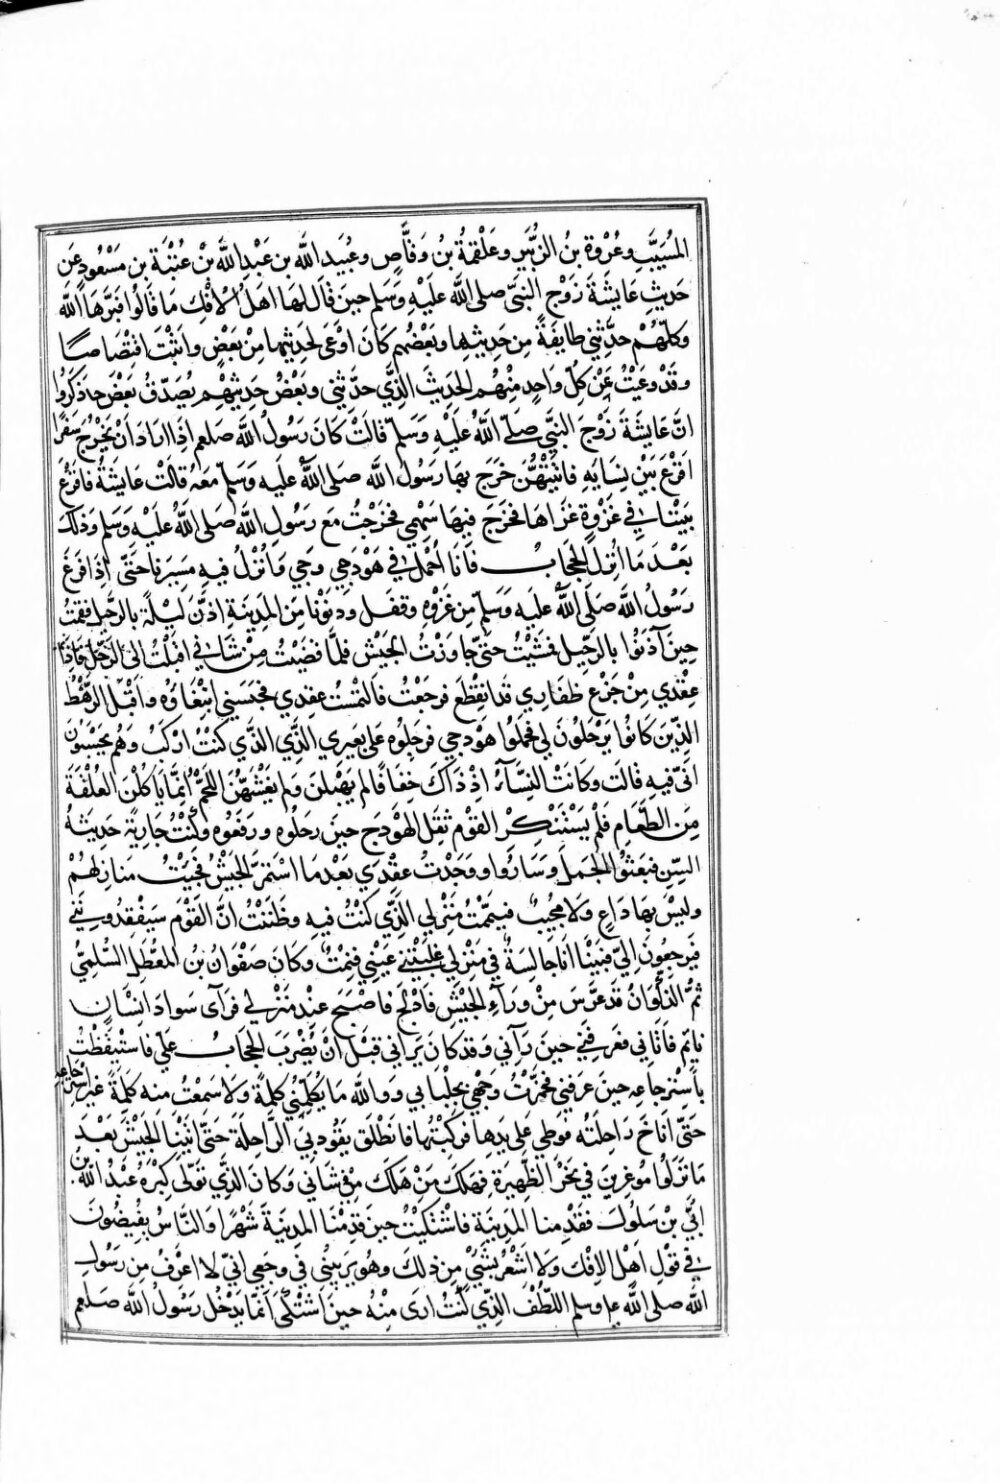 المُسَيَّبِ وعُرْوة بنُ الزُّبَير وعَلْقمةُ بنُ وَقَّاصٍ وعُبَيد اللّٰه بن عَبْدِ اللّٰه بْن عُتْبَةَ بنِ مَسْعُودٍ عَن
حَديثِ عَايشَةَ زَوْجِ النبيّ صلى اللّٰه عَلَيْهِ وَسَلم حينَ قالَ لهَا اهْلُ الاْفْكِ مَا قَالُوا فبَرَّهَا اللّٰه
وكلّهُمْ حدَّثني طايفَةً مِن حَديثها وبَعْضُهم كَانَ اوْعَى لحَديثها مِنْ بَعْضٍ واثبْتَ اقتِصَاصًا
وقدْ وعَيْتُ عَنْ كلّ واحِدٍ مِنْهُم الحَديثَ الذِّي حدّثني وبَعْضُ حَديثهِمْ يُصَدّقُ بَعْضَ
انَّ عَايشَةَ زَوْجَ النبَّي صَلىّ اللّٰه عَليْهِ وَسَلمّ قالتْ كَانَ رَسُولُ اللّٰه صلعم اذَا ارَادَ انْ يَخْرُجَ سَفَرًا
اقرَعَ بَيْنَ نِسَايهِ فَاتَيَّتُهُنَّ خَرَجَ بهَا رَسُولُ اللّٰه صَلى اللّٰه عليهِ وَسَلّم مَعَهُ قالَتْ عَايشَةُ فاقرَعَ
بَيْنَنَا فِي غزْوةٍ غزَاهَا فخَرَجَ فيهَا سَهْمي فخَرَجْتُ مَعَ رَسُولِ اللّٰه صَلى اللّٰه عَليْهِ وَسَلم وذلكَ
بَعْدَ مَا انُزلَ الحجَابُ فَانَا احُمَلُ في هَوْدجي وجَي وَانُزَلُ فيهِ مَسِيرَنا حَتّى اِذَا فرَغَ
رَسُولُ اللّٰه صَلَى اللّٰه عليَهِ وَسَلمّ مِن غزْوهِ وقفَلَ ودَنوْنَا مِنَ المدِينَةِ اذَّنَ لَيْلَةً بالرَّحيل فقمتُ
حِينَ آذنُوا بالرَّحيل فمَشَيْتُ حَتّى جَاوَزتُ الجَيْشَ فلمَّا قضَيْتُ مِنْ شَاني اقبَلْتُ الىَ الرَّحْل فَاذِا
عِقدي مِنْ جَزْع ظفَاري قدِ انقَطَع فرجَعْتُ فالتمسْتُ عِقدِي فحَبَسَني ابْتغَاوُهُ واقبَلَ الرَّهْطُ
الذِّينَ كانوُا يرْحَلوُنَ لي فحملُوا هَوْدجي فرحَلُوه عَلى بَعيري الذّي الذّي كنْتُ ارْكَبُ وهُم يحْسَبُونَ
انيّ فيهِ قالَت وكَانَتْ النِسَّآءُ اذِ ذَاكَ خِفَافًا لم يَهْبلنَ ولم يَغْشَهُنَّ اللّحمُ انِمَّا يَاكُلْنَ العُلْقَةَ
مِنَ الطّعَامِ فلَمْ يَسْتَنْكِر القَوْمُ ثقَلَ الهَوْدَج حينَ رحَلُوه ورَفَعُوه وكُنْتُ جَارِيَةً حَديثَهُ
السِّنِ فبعَثوُا الجَمل وسَارُوا ووَجَدْتُ عِقْدي بَعْدَ مَا اسْتَمرَّ الجَيْشُ فجَيْتُ مَنَازلهُمْ
وليْسَ بهَا دَاعٍ ولا مجيُبٌ فيَمّمْتُ مَنزلي الذَّي كنْتُ فيه وظَنَنْتُ انَّ القَوْمَ سَيفْقدُوننَي
فَيرجعُونَ اِليّ فبَيْنَا انَا جَالِسَةٌ في مَنْزلي غلَبتْني عَيْني فنِمتُ وكَانَ صَفْوَانُ بنُ المعُطّلِ السُّلميّ
ثمُّ الذكْوَانيُّ قدْ عَرَّسَ مِنْ ورَآءِ الجَيش فَادْلجَ فاصْبحَ عِنْد مَنْزلي فرَآى سَوادَ انِسَانٍ
نايمٍ فَاتَاني فعَرفَني حينَ رآني وقدْ كانَ يَراني قبْلَ انْ يُضْرَبَ الحجَابُ عَلي فَاسْتيقَظْتُ
باسْترجَاعِه حينَ عرَفني فخمَّرْتُ وجَهْي بجلبَابي وواللّٰه مَا يُكلّمُني كلِمةً ولا سَمعْتُ منه كلمَةً غيرَ اسْترجَاعهِ
حتّى اناخَ راحِلتَهُ فوَطي عَلى يَدِها فركبتُها فانطلق يَقودُ بيَ الرَّاحِلَةَ حَتّى اتَيْنَا الجَيْشَ بَعْدَ
مَا نزَلُوا مُوغِرينَ في نحْرِ الظّهيَرة فهلكَ مَنْ هَلَكَ مِنْ شَاني وكَانَ الذِّي توَلّى كبْرَهُ عَبْدُ اللّٰه بنُ
ابيّ بْن سَلُولَ فقَدِمنا المَدينَةَ فاشْتكَيْتُ حينَ قدِمْنَا المَدينَةَ شَهْرًا وَالنَّاسُ يُفيِضُونَ
في قوْلِ اهْلِ الافكِ ولا اشْعُرُ بشَيْءٍ مِن ذلكَ وهُو يرَيبُني في وَجعي انيّ لا اعْرفُ مِن رَسُولِ
اللّٰه صَلى اللّٰه عليه وسلم اللُّطْفَ الذِّي كُنْتُ ارَى مِنْهُ حينَ اشْتكي انمَّا يَدْخُلُ رَسُولُ اللّٰه صَلعم